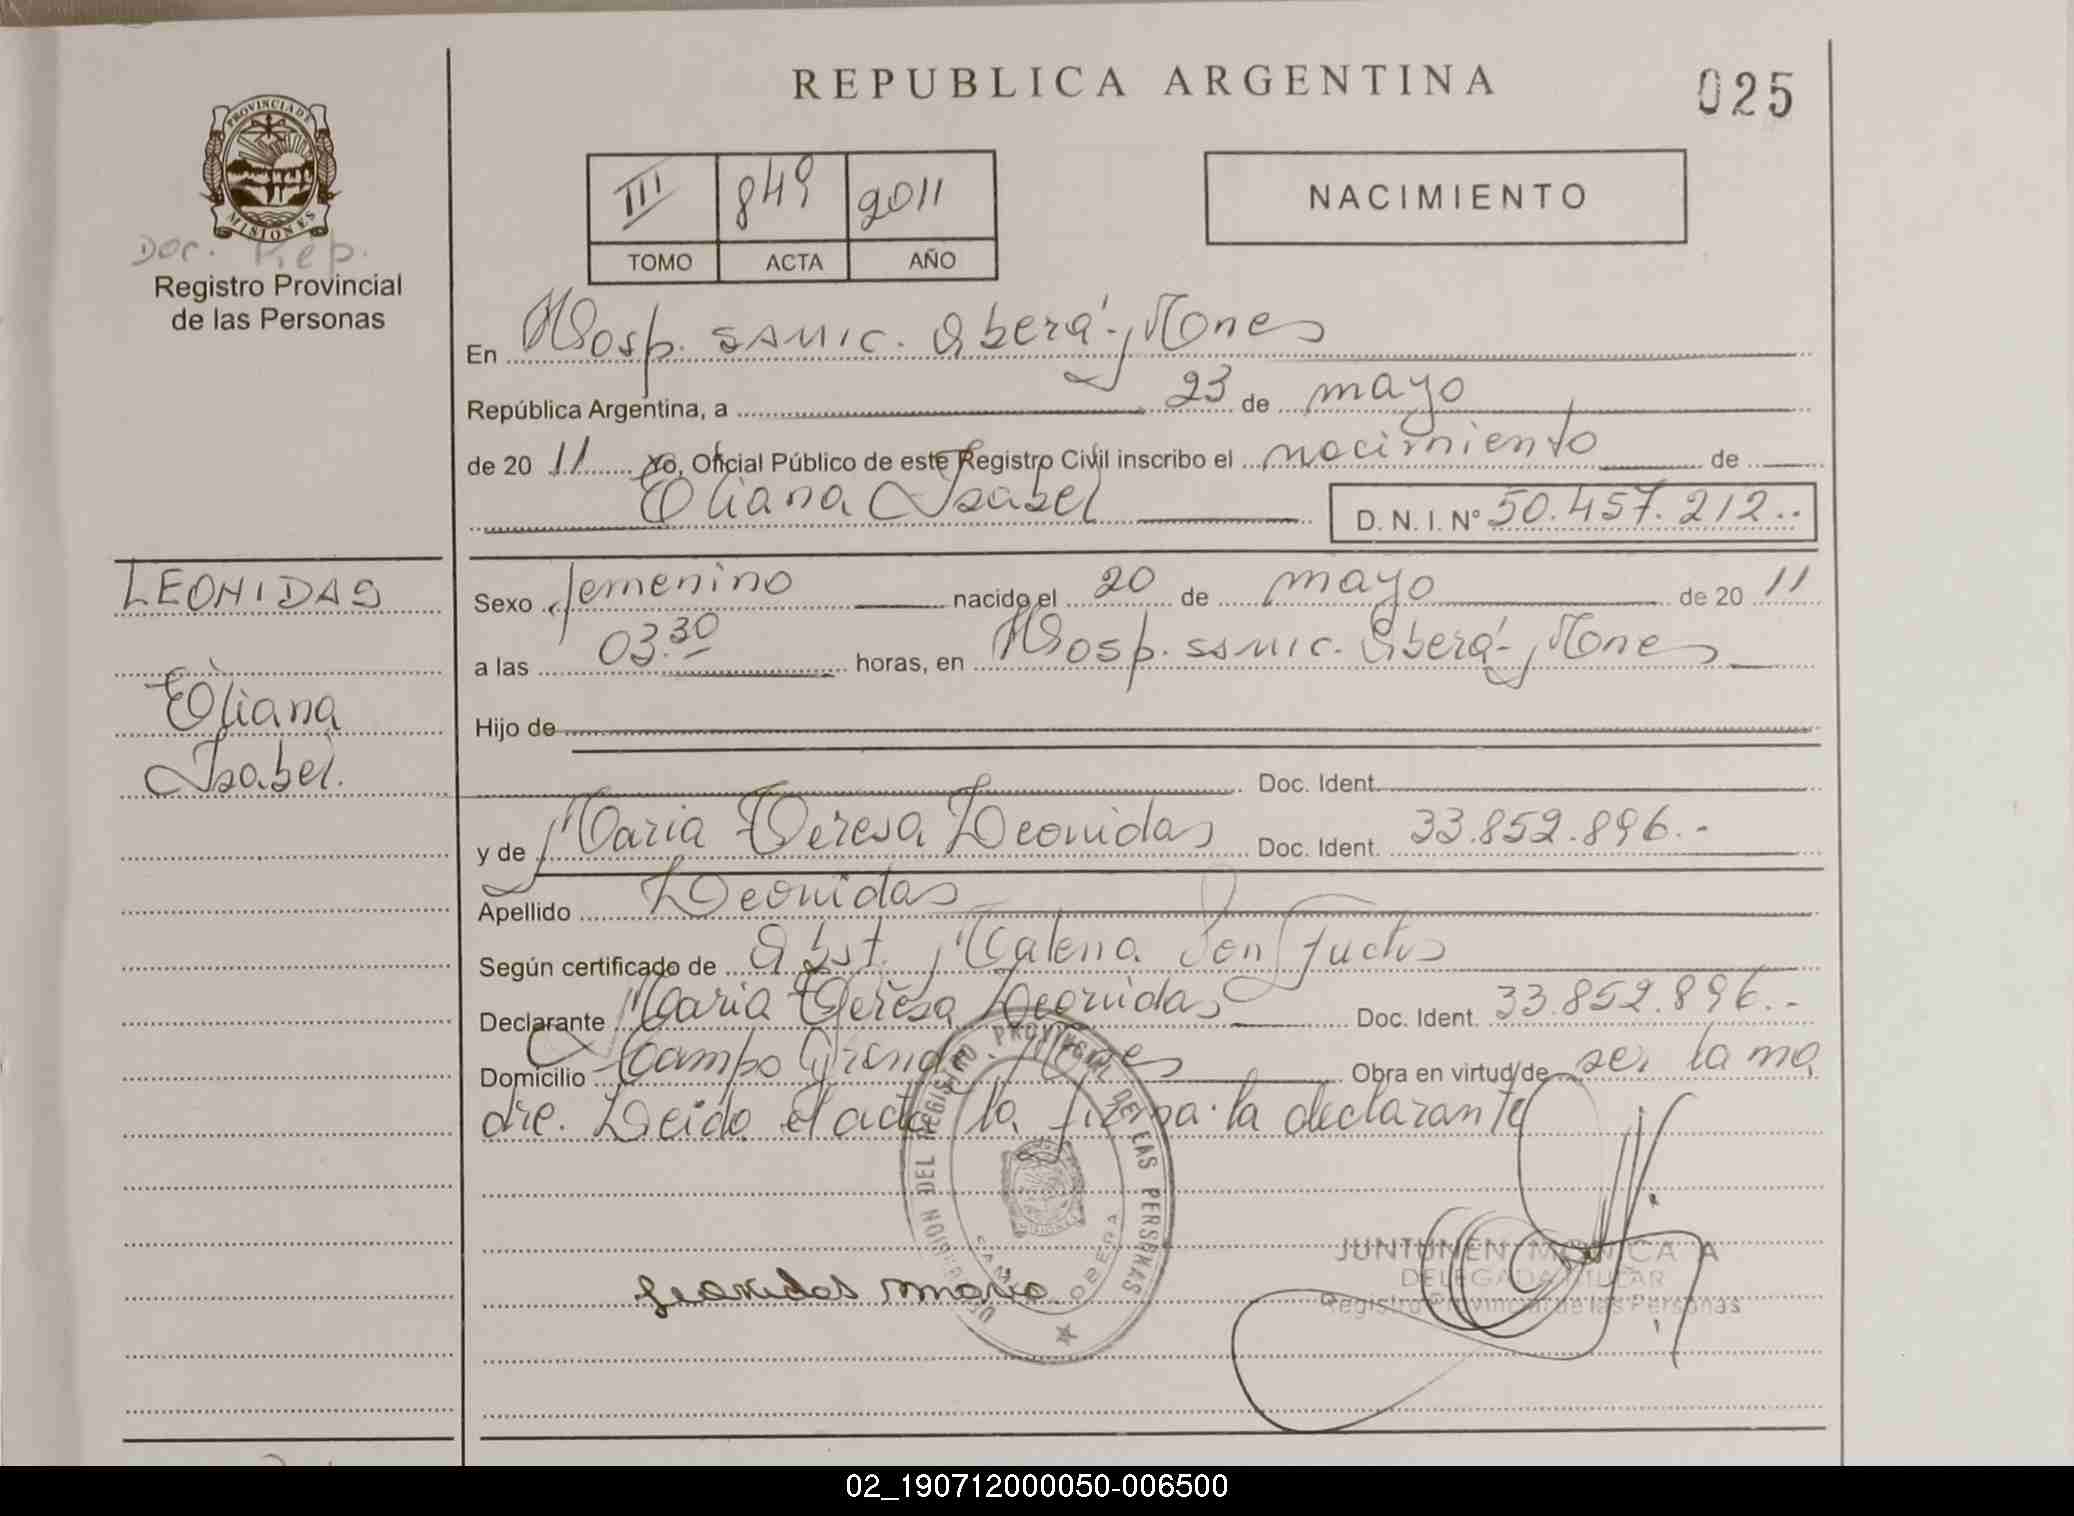 REPUBLICA ARGENTINA
025
PROVINCIA DE
MISIONES
Doc. Rep.
Registro Provincial
de las Personas
III 849 2011
TOMO ACTA AÑO
NACIMIENTO
En Hosp. SAMIC. Oberá-, Mones
República Argentina, a 23 de mayo
de 20 11 Yo, Oficial Público de este Registro Civil inscribo el nacimiento de
Eliana Isabel D. N. I. Nº 50.457.212..
LEONIDAS
Eliana
Isabel.
Sexo femenino nacido el 20 de mayo de 20 11
a las 03.30 horas, en Hosp. SAMIC. Oberá-, Mones
Hijo de
Doc. Ident.
y de Maria Teresa Leonidas Doc. Ident. 33.852.896.-
Apellido Leonidas
Según certificado de Obst. Malena
Declarante Maria Teresa Leonidas Doc. Ident. 33.852.896.-
Domicilio Campo Grande, Mones Obra en virtud de ser la ma
dre. Leida el acta la firma la declarante
DEL REGISTRO PROVINCIAL DE LAS PERSONAS
OBERA
Leonidas Maria
JUNTUNEN MONICA A
DELEGADA TITULAR
Registro Provincial de las Personas
02_190712000050-006500